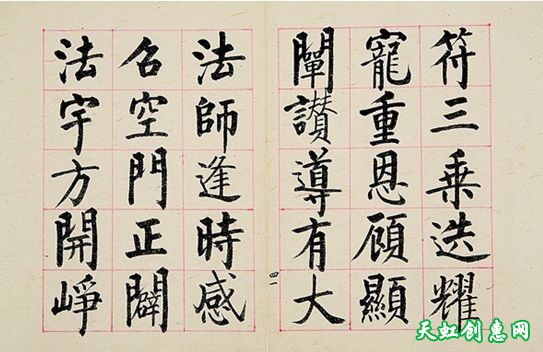 符三乘迭耀
寵重恩顧顯
闡讃導有大
四一
法師逢時感
召空門正闢
法宇方開崢
天虹创惠网